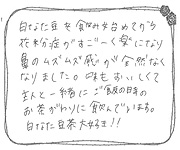 白なた豆を飲み始めてから
花粉症がすごーく楽になり
鼻のムズムズ感が全然なく
なりました。味もおいしくて
主人と一緒にご飯の時の
お茶がわりに飲んでいます。
白なた豆茶大好き!!